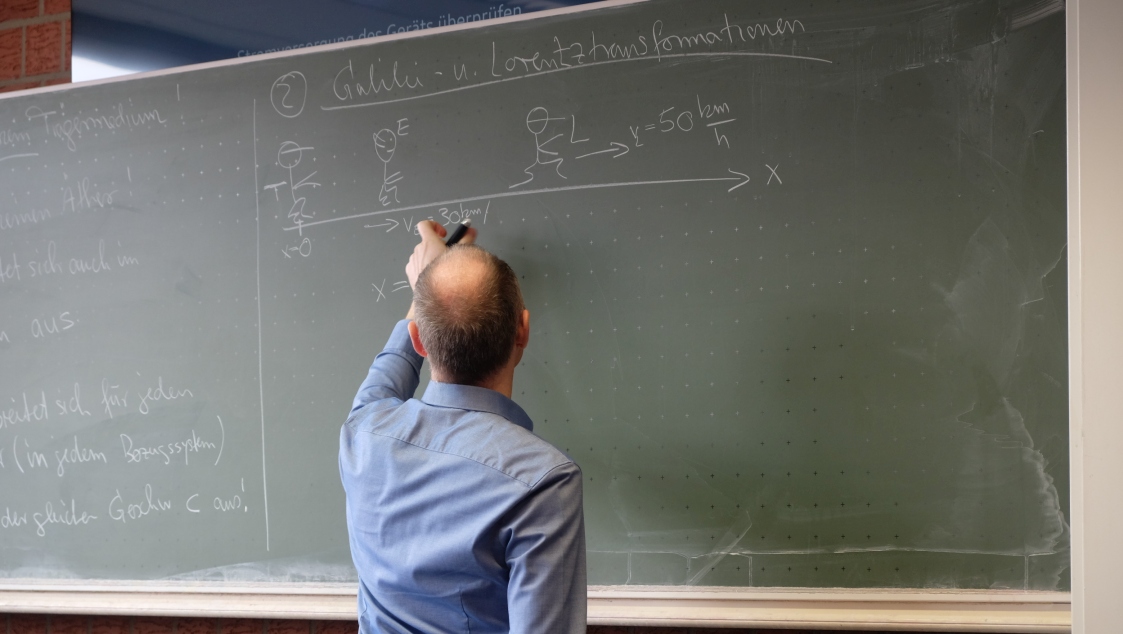 Stromversorgung des Geräts überprüfen
Trägermedium !
einen Äther !
tet sich auch im
n aus
breitet sich für jeden
(in jedem Bezugssystem)
der gleichen Geschw c aus!
② Galilei- u. Lorentztransformationen
T
E
L
v=50 km/h
x
x=0
=30km/
x=